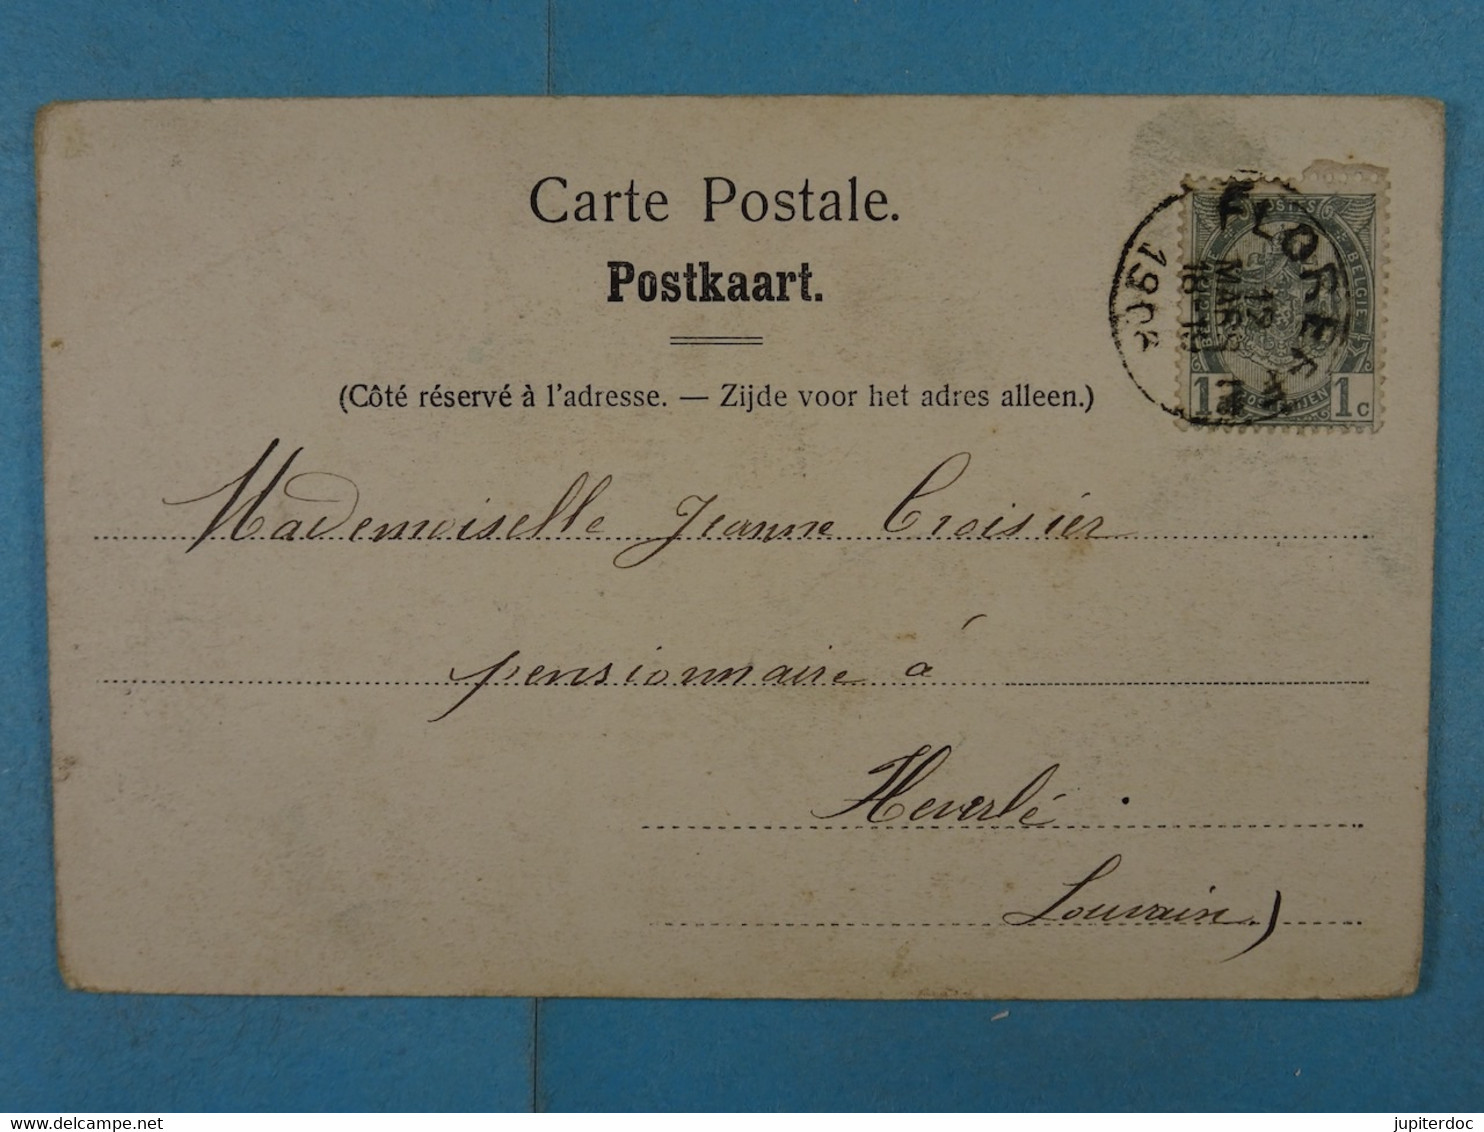 Carte Postale.
Postkaart.
(Côté réservé à l'adresse. — Zijde voor het adres alleen.)
FLOREFFE
12
MARS
18-19
POSTES
BELGIE
1 1c
Mademoiselle Jeanne Croisier
pensionnaire à
Heverlé.
Louvain)
jupiterdoc